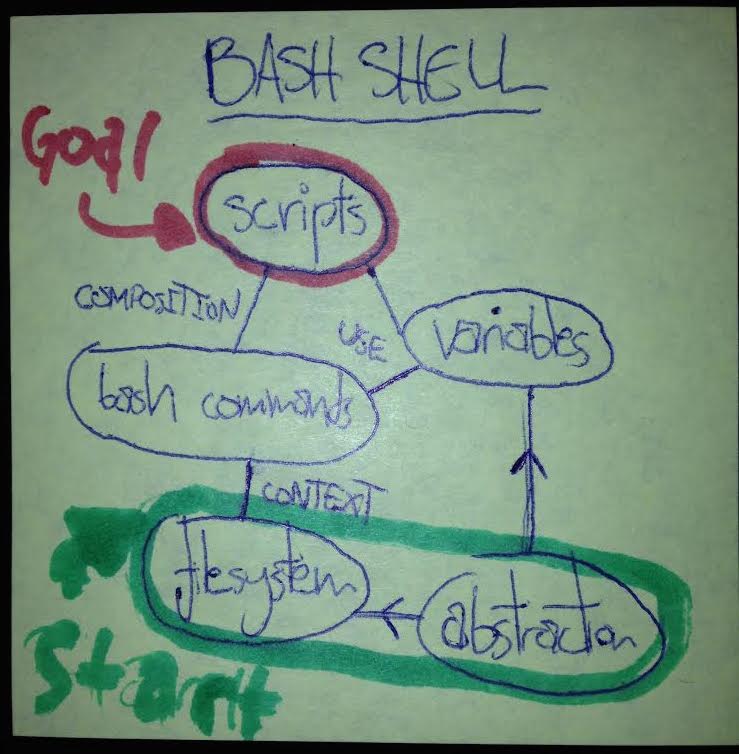 BASH SHELL
Goal
scripts
COMPOSITION
USE
variables
bash commands
CONTEXT
filesystem
abstraction
Start